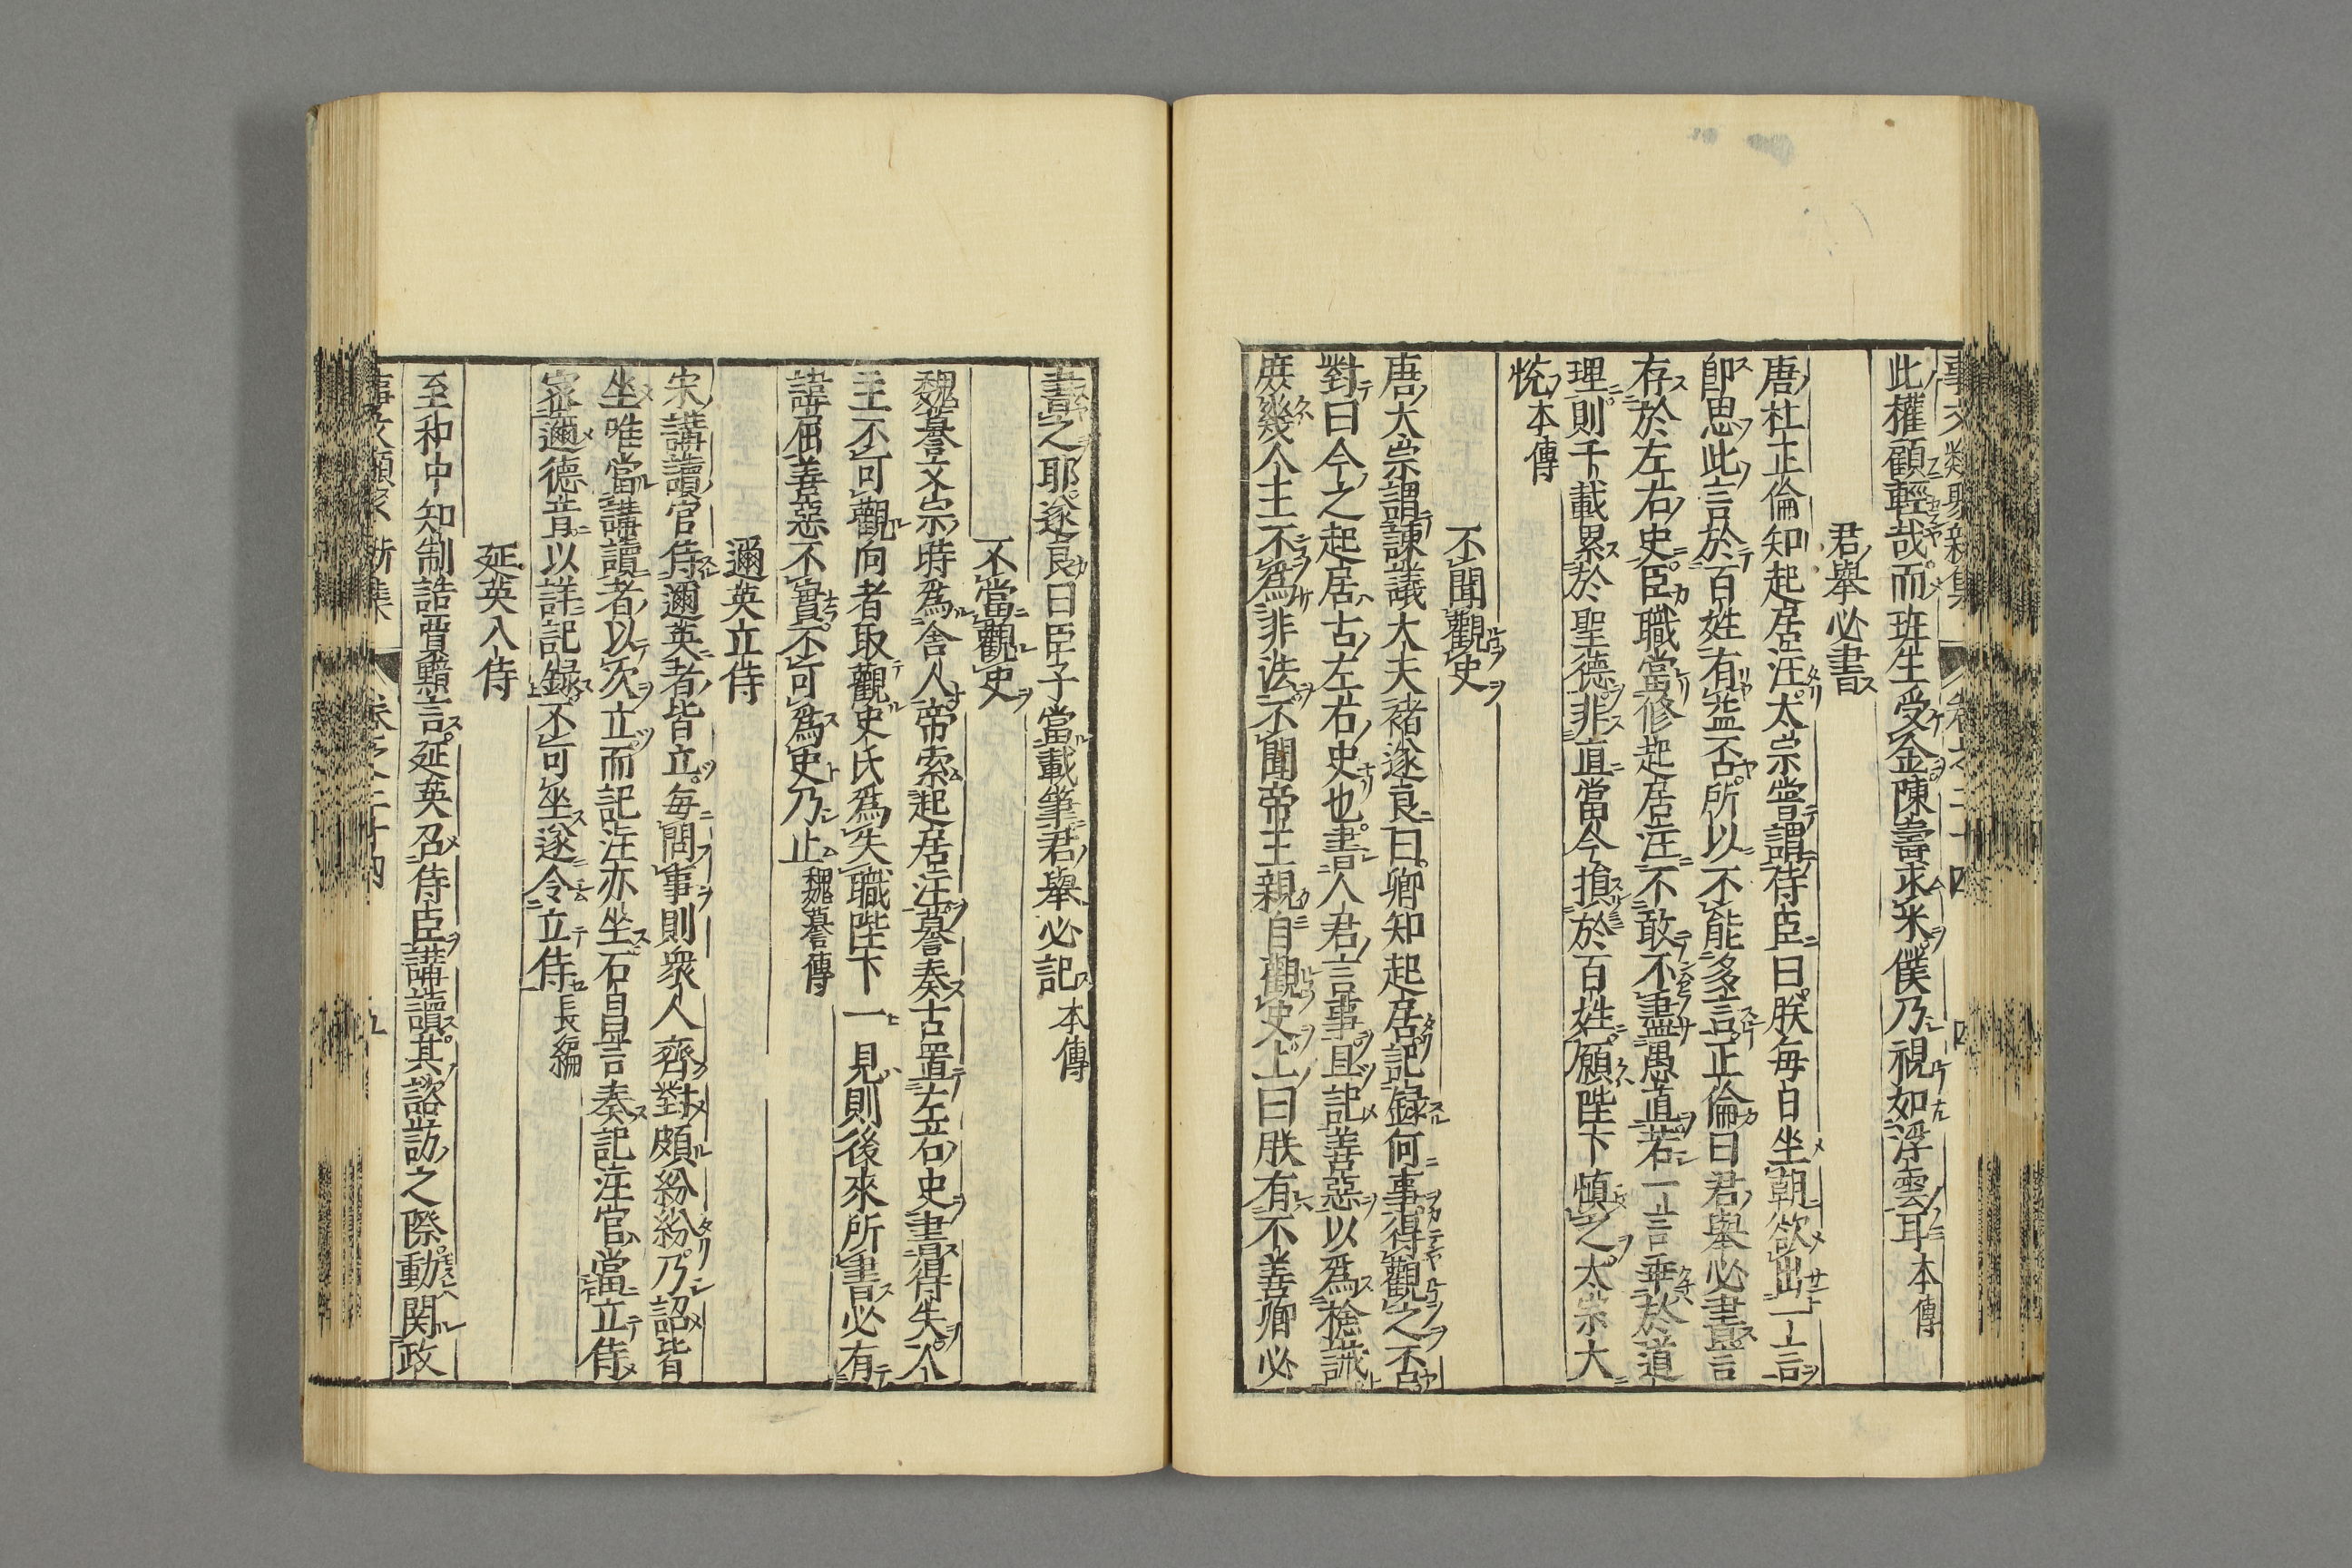 事文類聚新集 卷之二十四 四
此權顧輕哉而班生受金陳壽求米僕乃視如浮雲耳本傳
君舉必書
唐杜正倫知起居注太宗嘗謂侍臣曰朕每日坐朝欲出一言
卽思此言於百姓有益否所以不能多言正倫曰君舉必書言
存於左右史臣職當修起居注不敢不盡愚直若一言乖於道
理則千載累於聖德非直當今損於百姓願陛下慎之太宗大
悅本傳
不聞觀史
唐太宗謂諫議大夫褚遂良曰卿知起居記錄何事得觀之否
對曰今之起居古左右史也書人君言事且記善惡以爲檢誡
庶幾人主不爲非法不聞帝王親自觀史上曰朕有不善卿必
書之耶遂良曰臣子當載筆君舉必記本傳
不當觀史
魏謩文宗時爲舍人帝索起居注謩奏古置左右史書得失人
主不可觀向者取觀史氏爲失職陛下一見則後來所書必有
諱屈善惡不實不可爲史乃止魏謩傳
邇英立侍
宋講讀官侍邇英者皆立每問事則衆人齊對頗紛紛乃詔皆
坐唯當講讀者以次立而記注亦坐石昌言奏記注官當立侍
密邇德音以詳記録不可坐遂令立侍長編
延英入侍
至和中知制誥賈黯言延英召侍臣講讀其諮訪之際動関政
事文類聚新集 卷之二十四 五